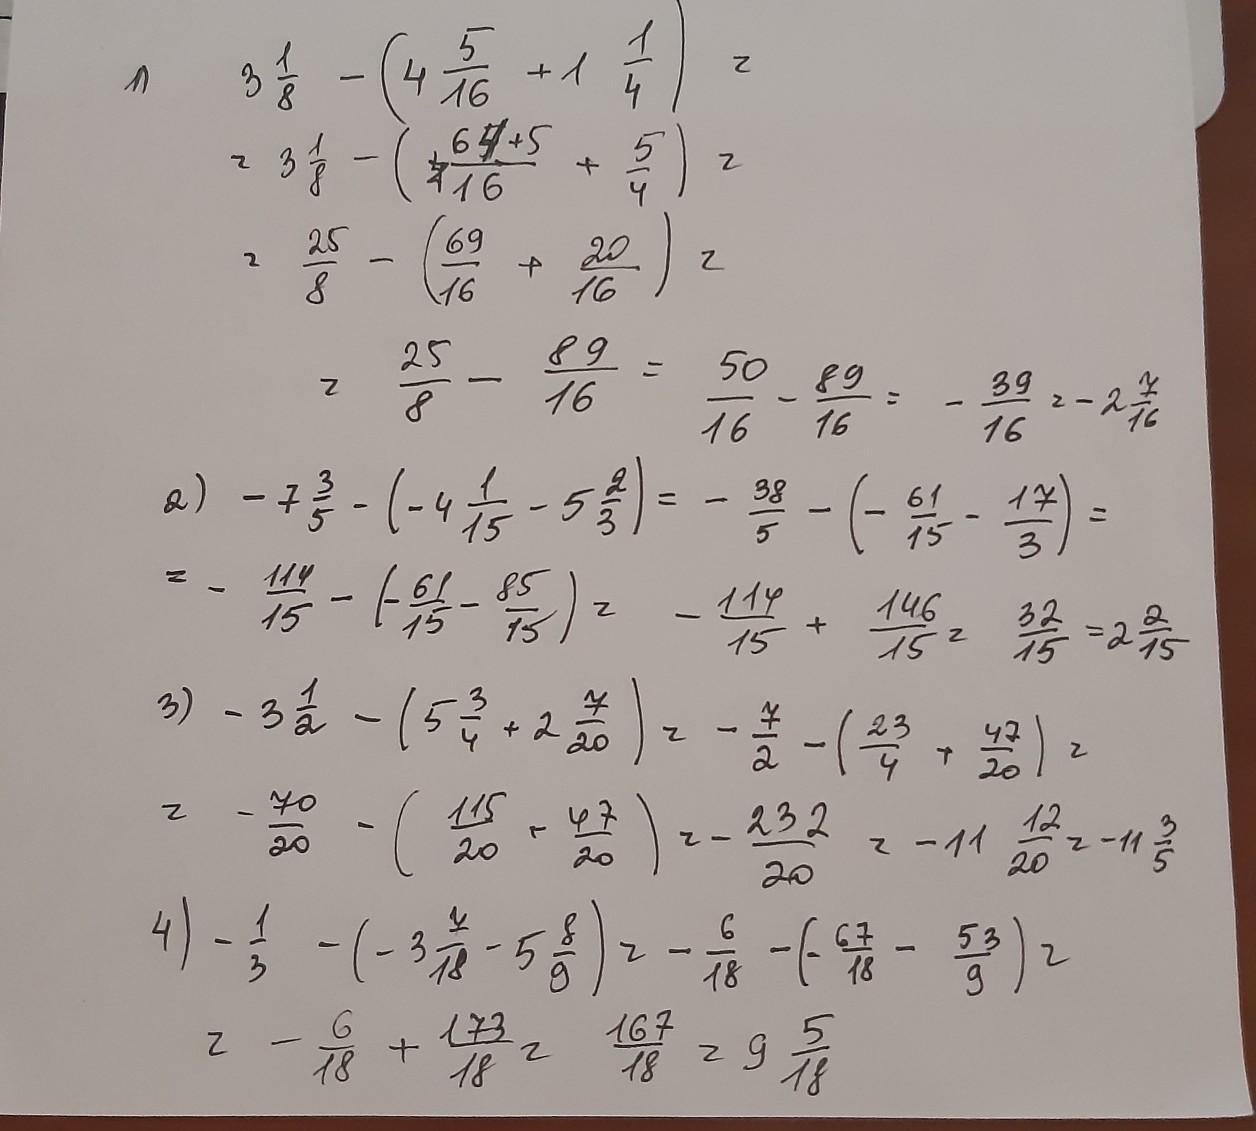 1) 3 1/8 - (4 5/16 + 1 1/4) =
= 3 1/8 - ( (64+5)/16 + 5/4 ) =
= 25/8 - (69/16 + 20/16) =
= 25/8 - 89/16 = 50/16 - 89/16 = - 39/16 = - 2 7/16
2) - 7 3/5 - (- 4 1/15 - 5 2/3) = - 38/5 - (- 61/15 - 17/3) =
= - 114/15 - (- 61/15 - 85/15) = - 114/15 + 146/15 = 32/15 = 2 2/15
3) - 3 1/2 - (5 3/4 + 2 7/20) = - 7/2 - (23/4 + 47/20) =
= - 70/20 - (115/20 + 47/20) = - 232/20 = - 11 12/20 = - 11 3/5
4) - 1/3 - (- 3 7/18 - 5 8/9) = - 6/18 - (- 67/18 - 53/9) =
= - 6/18 + 173/18 = 167/18 = 9 5/18